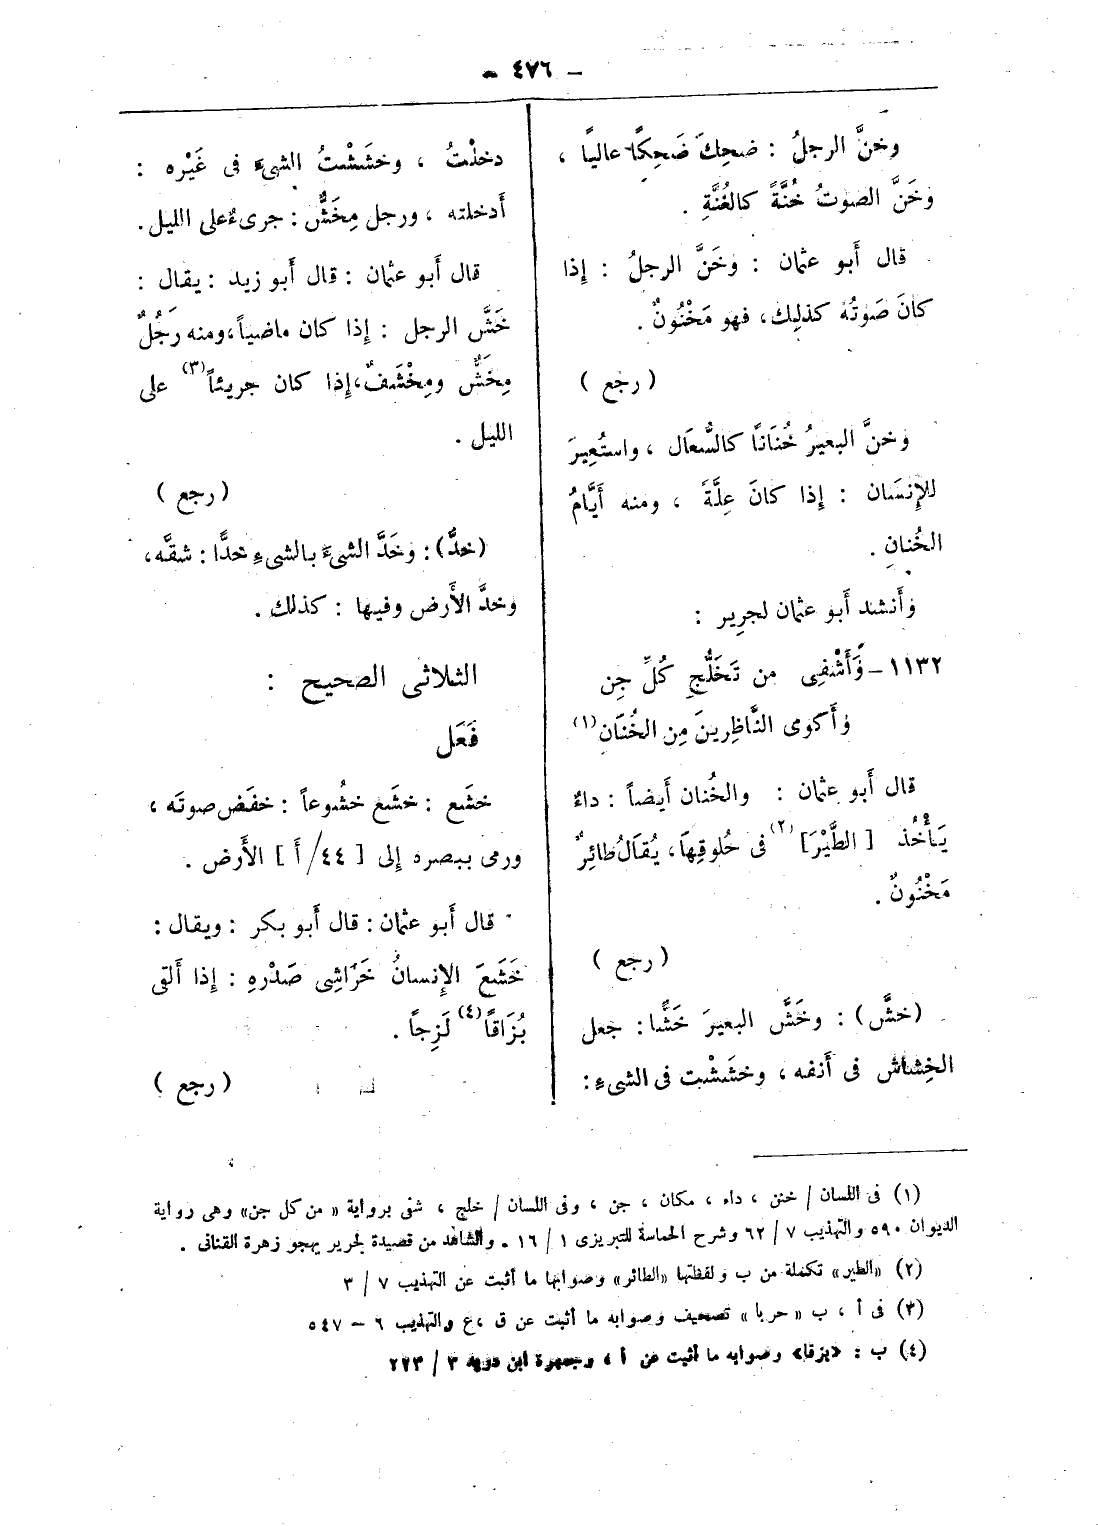 - ٤٧٦ -
وخنَّ الرجلُ : ضحِكَ ضَحِكًا عاليًا ،
وَخَنَّ الصوتُ خُنَّةً كالغُنَّةِ .
قال أبو عثمان : وخَنَّ الرجلُ : إذا
كانَ صَوتُهُ كذلِك، فهو مَخْنُونٌ .
( رجع )
وخنَّ البعيرُ خُنَانًا كالسُّعَال ، واستُعِيرَ
للإِنسَان : إِذا كانَ عِلَّةً ، ومنه أَيَّامُ
الخُنانِ .
وأَنشد أَبو عثمان لجرير :
١١٣٢ - وَأَشْفِى من تَخَلُّجِ كُلِّ جِن
وَأَكوى النَّاظِرينَ مِن الخُنَانِ (١)
قال أَبو عثمان : والخُنان أَيضاً : داءٌ
يَأْخُذ [ الطَّيْرَ] (٢) فى حُلوقِهَا، يُقَالُ طائِرٌ
مَخْنُونٌ .
( رجع )
(خشَّ) : وخَشَّ البعيرَ خَشًّا : جعل
الخِشاش فى أَنفه ، وخشَشْت فى الشىءِ :
دخلْتُ ، وخشَشْتُ الشىءَ فى غَيْره :
أَدخلته ، ورجل مِخَشٌّ : جرىءٌ على الليل .
قال أَبو عثمان : قال أَبو زيد : يقال :
خَشَّ الرجل : إِذا كان ماضياً، ومنه رَجُلٌ
مِخَشٌّ ومِخْشَفٌ، إِذا كان جريئاً (٣) على
الليل .
( رجع )
(خدَّ) : وَخَدَّ الشىءَ بالشىءِ خدًّا : شقَّه،
وخدَّ الأَرض وفيها : كذلك .
الثلاثى الصحيح :
فَعَل
خشَع : خشَع خشُوعاً : خفَض صوتَه ،
ورمى ببصره إلى [ ٤٤/أ ] الأَرض .
قال أَبو عثمان : قال أَبو بكر : ويقال :
خَشَعَ الإِنسانُ خَرَاشِى صَدْرِهِ : إِذا أَلقى
بُزَاقاً (٤) لَزِجاً .
( رجع )
(١) فى اللسان / خنن ، داء ، مكان ، جن ، وفى اللسان / خلج ، شفى برواية « من كل جن» وهى رواية
الديوان ٥٩٠ والتهذيب ٧ / ٦٢ وشرح الحماسة للتبريزى ١ / ١٦ . والشاهد من قصيدة لجرير يهجو زهرة القنانى .
(٢) «الطير» تكملة من ب ولفظتها «الطائر» وصوابها ما أثبت عن التهذيب ٧ / ٣
(٣) فى أ ، ب « حربا » تصحيف وصوابه ما أثبت عن ق ،ع والتهذيب ٦ - ٥٤٧
(٤) ب : «بزقا» وصوابه ما أثبت عن أ ، وجمهرة ابن دريد ٣ / ٢٧٣